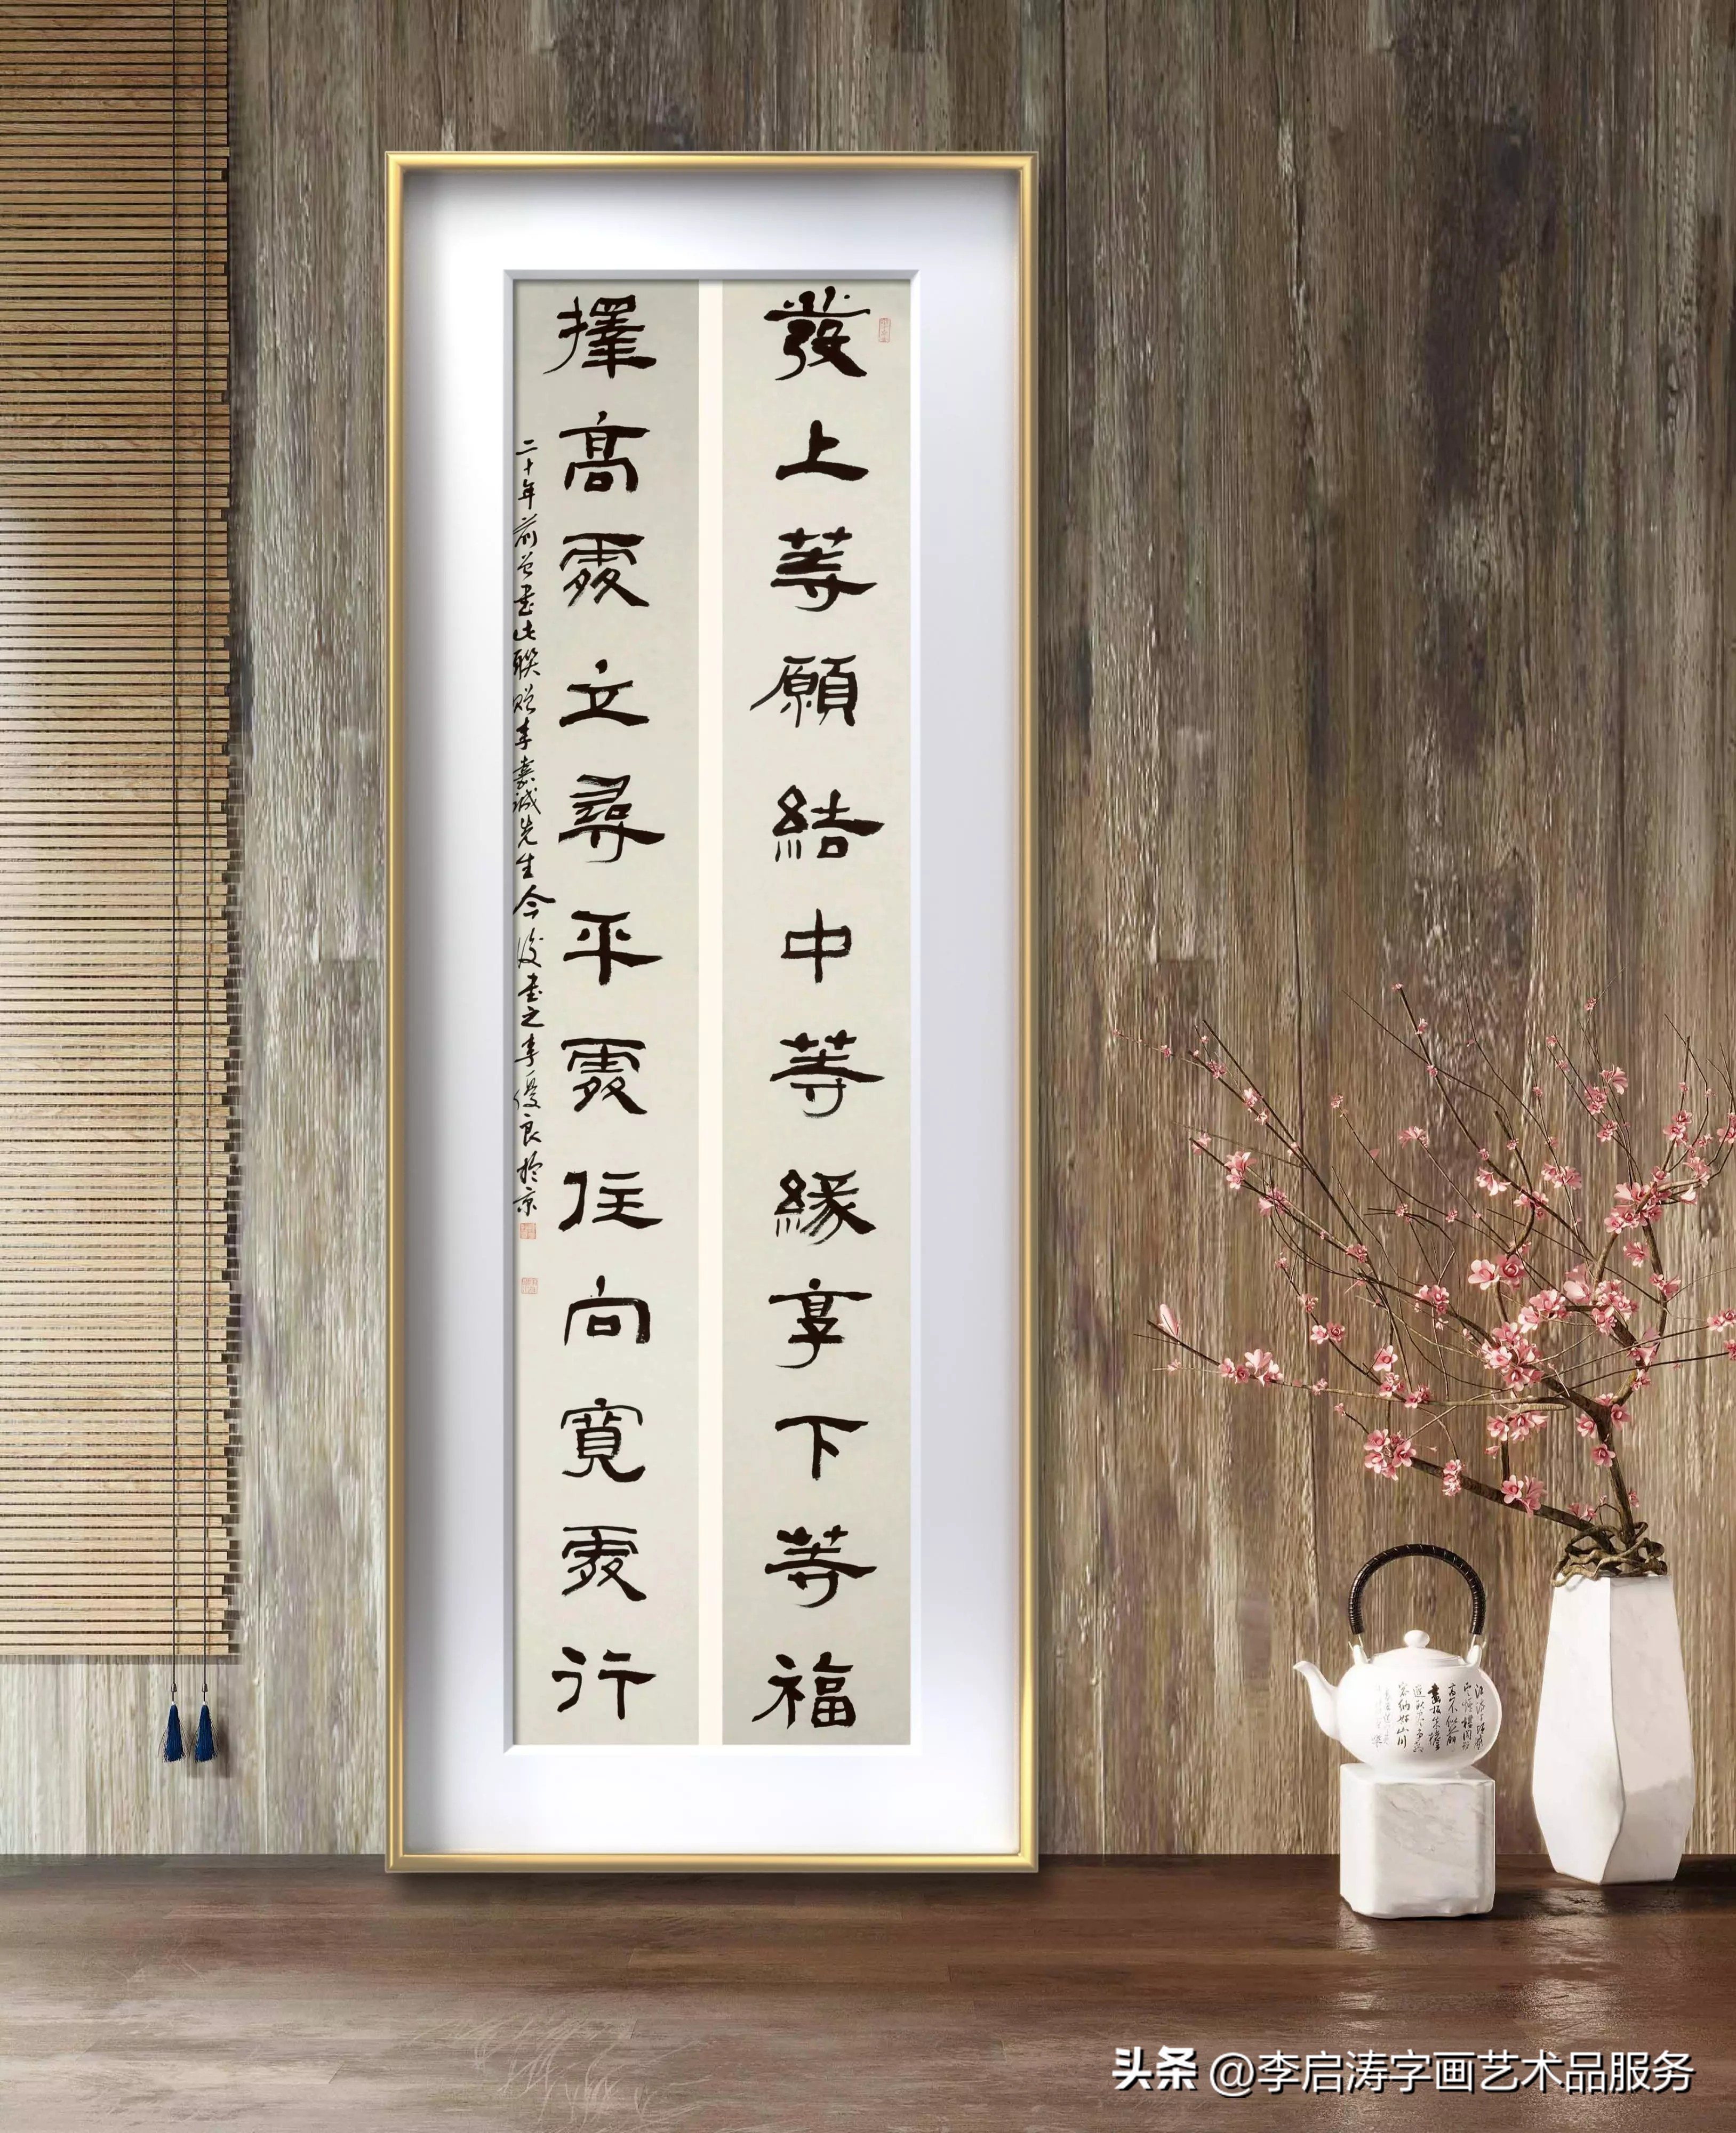 發上等願結中等緣享下等福
擇高處立尋平處住向寬處行
二十年前曾書此聯贈李嘉誠先生今復書之李優良於京
头条 @李启涛字画艺术品服务